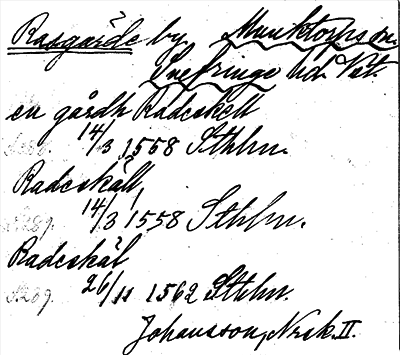 Rasgärde by, Munktorps sn.
Snefringe hd. Vstl.
en gårdh Radeskell
14/3 1558 Sthlm.
Radeskäll,
14/3 1558 Sthlm.
Radeskäl
26/11 1562 Sthlm.
Johansson, Nrsk. II.